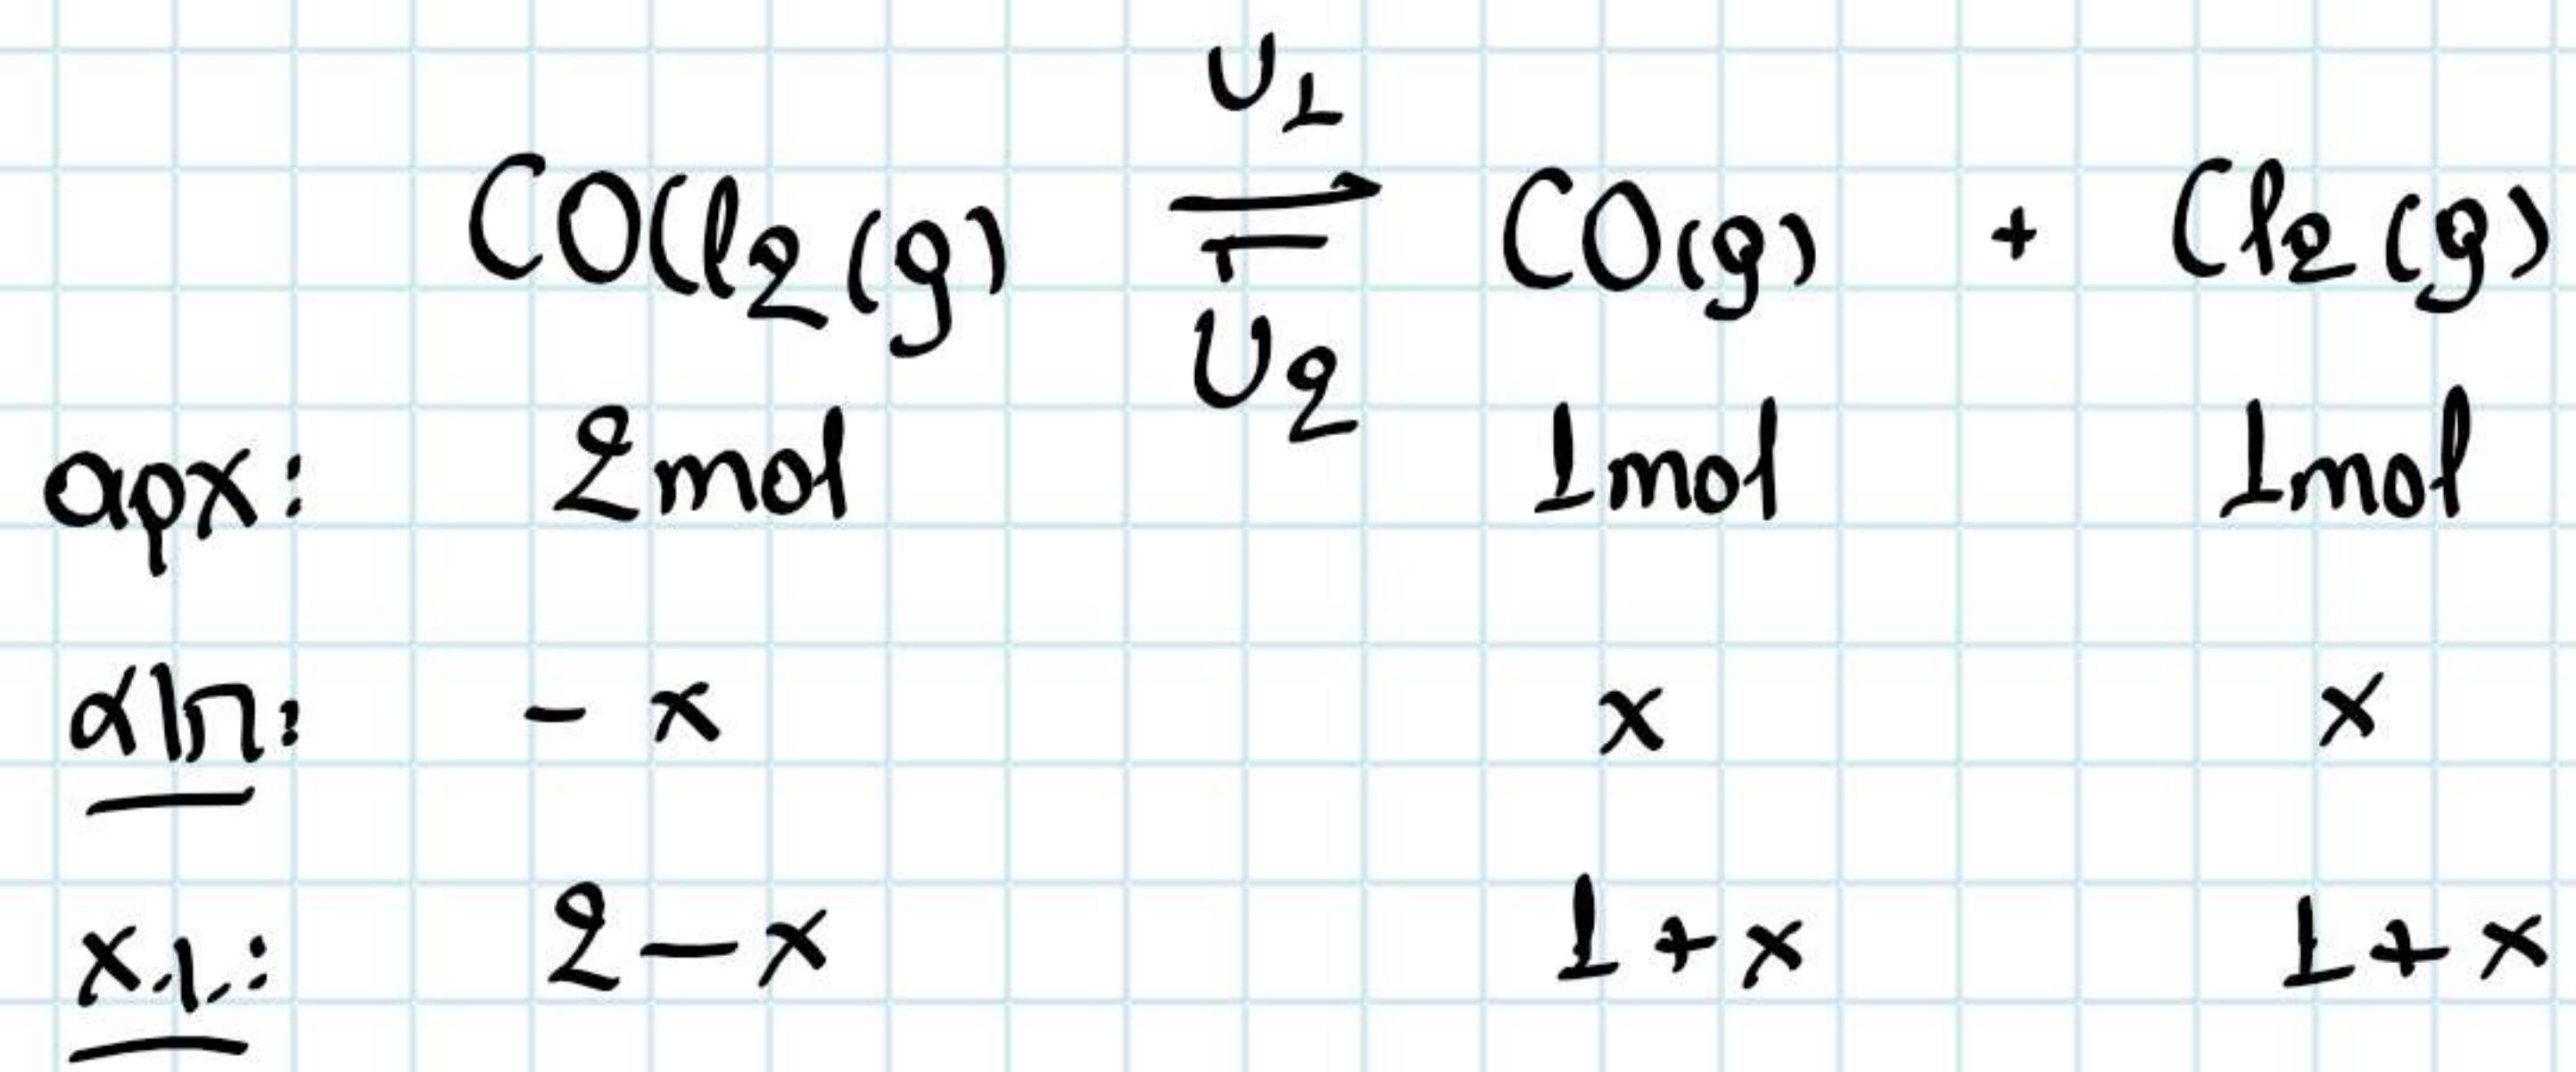 υ₁
COCl₂(g) ⇌ CO(g) + Cl₂(g)
υ₂
αρχ: 2mol 1mol 1mol
α|π: - x x x
χ.ι.: 2-x 1+x 1+x